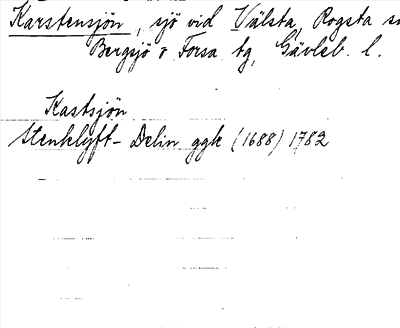 Karstensjön, sjö vid Välsta, Rogsta s
Bergsjö o Forsa tg, Gävleb. l.
Kastsjön
Stenklyft-Delin ggk (1688) 1782